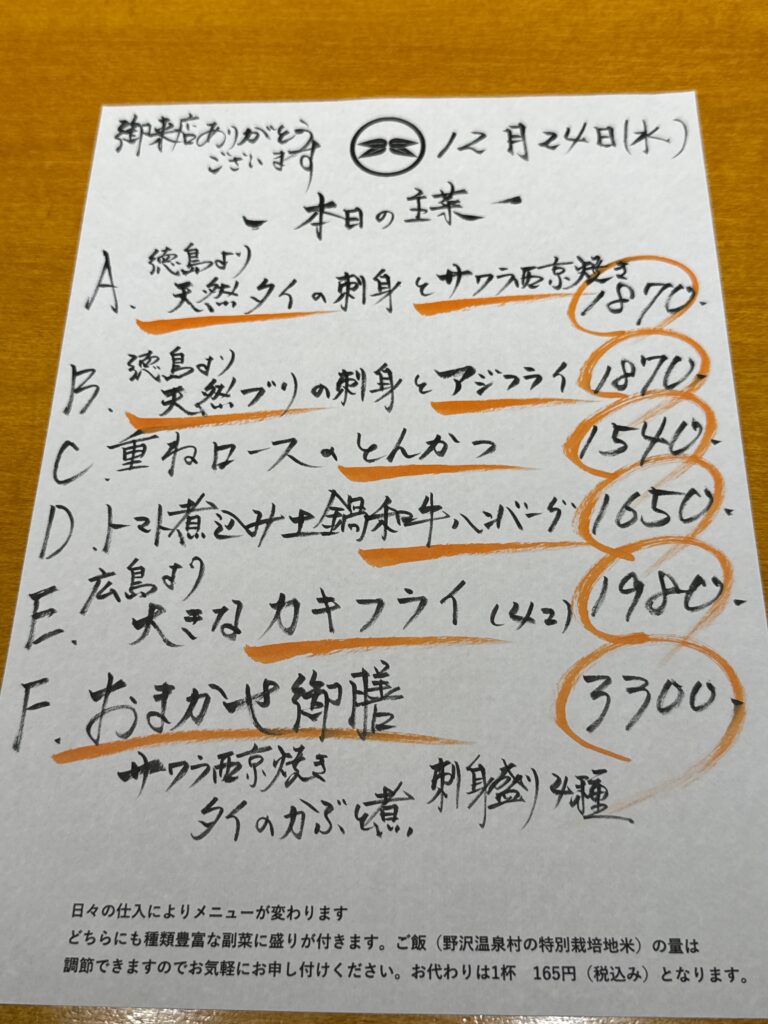 御来店ありがとう
ございます
12月24日(水)
ー 本日の主菜 ー
徳島より
A. 天然タイの刺身とサワラ西京焼き 1870-
徳島より
B. 天然ブリの刺身とアジフライ 1870-
C. 重ねロースのとんかつ 1540-
D. トマト煮込み土鍋和牛ハンバーグ 1650-
広島より
E. 大きなカキフライ(4コ) 1980-
F. おまかせ御膳 3300-
サワラ西京焼き 刺身盛り4種
タイのかぶと煮
日々の仕入によりメニューが変わります
どちらにも種類豊富な副菜に盛りが付きます。ご飯（野沢温泉村の特別栽培地米）の量は
調節できますのでお気軽にお申し付けください。お代わりは1杯 165円（税込み）となります。